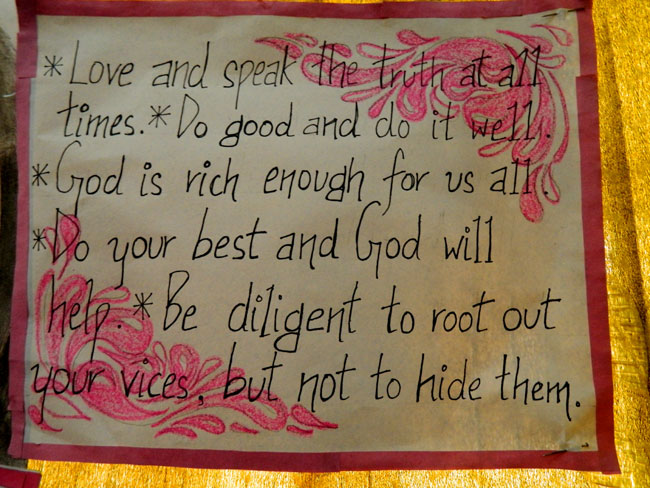 *Love and speak the truth at all
times.*Do good and do it well.
*God is rich enough for us all
*Do your best and God will
help.*Be diligent to root out
your vices, but not to hide them.